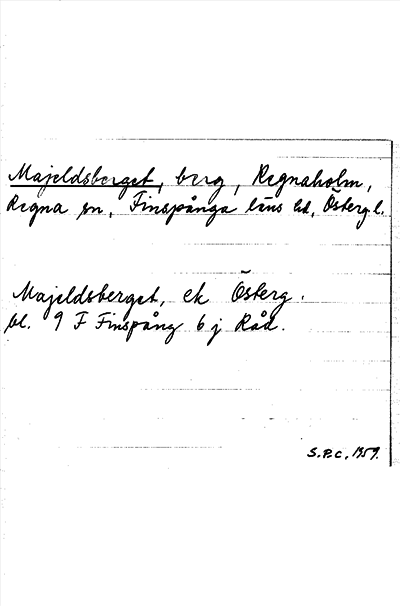 Majeldsberget, berg, Regnaholm,
Regna sn, Finspånga läns hd, Östergl.
Majeldsberget, ek Österg.
bl. 9 F Finspång 6 j Råd.
S.P.C, 1959.